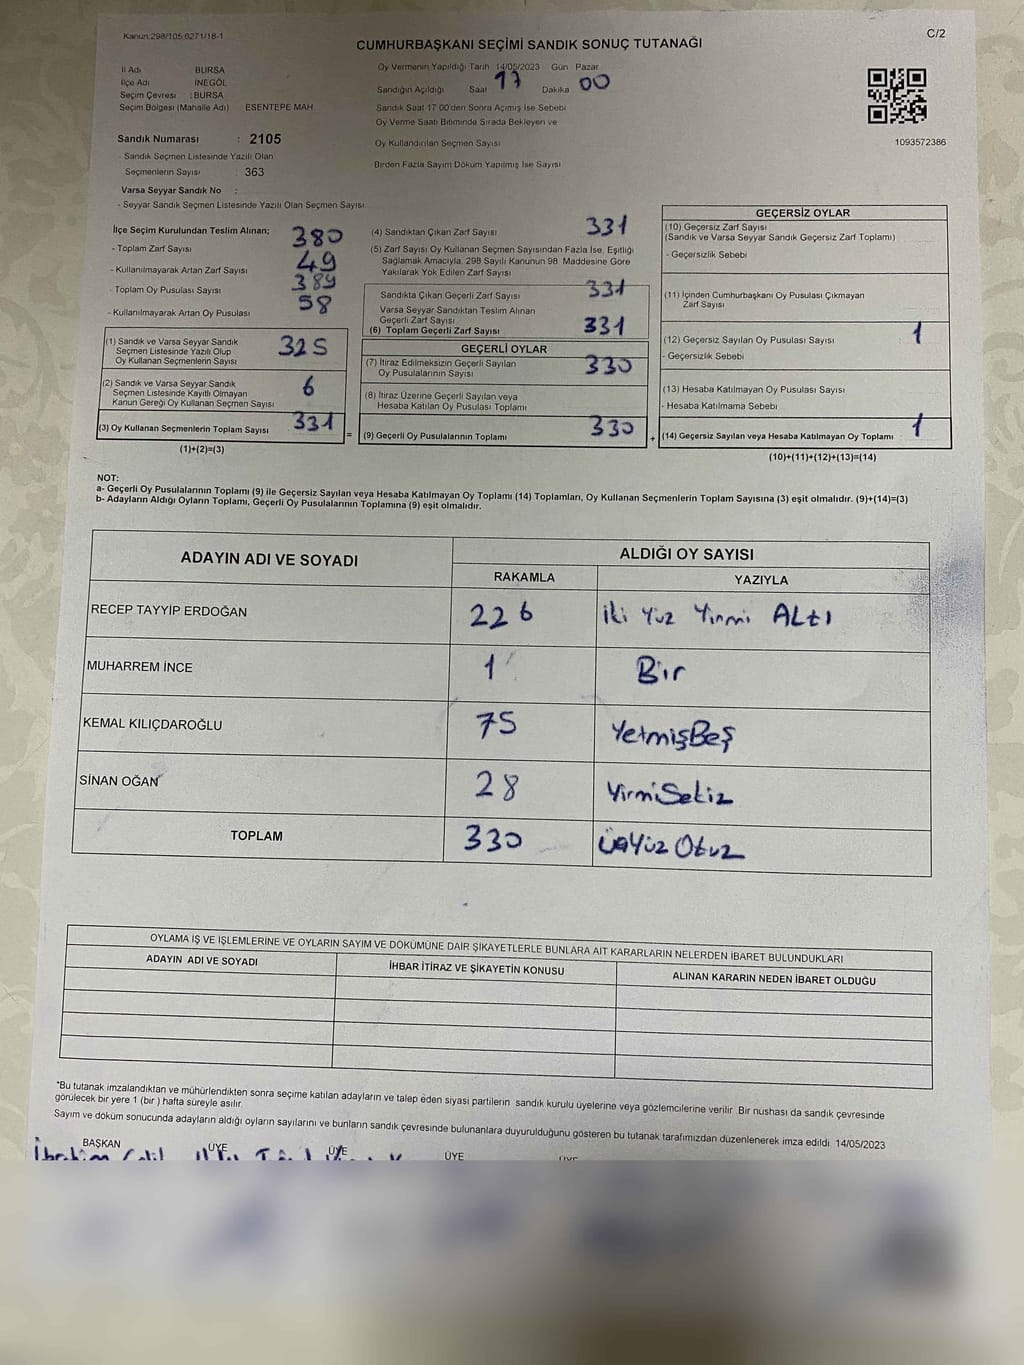 Kanun:298/105,6271/18-1
C/2
CUMHURBAŞKANI SEÇİMİ SANDIK SONUÇ TUTANAĞI
İl Adı BURSA
İlçe Adı İNEGÖL
Seçim Çevresi : BURSA
Seçim Bölgesi (Mahalle Adı) ESENTEPE MAH.
Oy Vermenin Yapıldığı Tarih 14/05/2023 Gün Pazar
Sandığın Açıldığı Saat 17 Dakika 00
Sandık Saat 17.00'den Sonra Açılmış İse Sebebi
Oy Verme Saati Bitiminde Sırada Bekleyen ve
Oy Kullandırılan Seçmen Sayısı
Birden Fazla Sayım Döküm Yapılmış İse Sayısı
1093572386
Sandık Numarası : 2105
- Sandık Seçmen Listesinde Yazılı Olan
Seçmenlerin Sayısı : 363
Varsa Seyyar Sandık No :
- Seyyar Sandık Seçmen Listesinde Yazılı Olan Seçmen Sayısı
İlçe Seçim Kurulundan Teslim Alınan;
- Toplam Zarf Sayısı 380
- Kullanılmayarak Artan Zarf Sayısı 49
- Toplam Oy Pusulası Sayısı 389
- Kullanılmayarak Artan Oy Pusulası 58
(1) Sandık ve Varsa Seyyar Sandık
Seçmen Listesinde Yazılı Olup
Oy Kullanan Seçmenlerin Sayısı 325
(2) Sandık ve Varsa Seyyar Sandık
Seçmen Listesinde Kayıtlı Olmayan
Kanun Gereği Oy Kullanan Seçmen Sayısı 6
(3) Oy Kullanan Seçmenlerin Toplam Sayısı 331
(1)+(2)=(3)
(4) Sandıktan Çıkan Zarf Sayısı 331
(5) Zarf Sayısı Oy Kullanan Seçmen Sayısından Fazla İse, Eşitliği
Sağlamak Amacıyla, 298 Sayılı Kanunun 98. Maddesine Göre
Yakılarak Yok Edilen Zarf Sayısı
Sandıkta Çıkan Geçerli Zarf Sayısı 331
Varsa Seyyar Sandıktan Teslim Alınan
Geçerli Zarf Sayısı
(6) Toplam Geçerli Zarf Sayısı 331
GEÇERLİ OYLAR
(7) İtiraz Edilmeksizin Geçerli Sayılan
Oy Pusulalarının Sayısı 330
(8) İtiraz Üzerine Geçerli Sayılan veya
Hesaba Katılan Oy Pusulası Toplamı
= (9) Geçerli Oy Pusulalarının Toplamı 330 +
GEÇERSİZ OYLAR
(10) Geçersiz Zarf Sayısı
(Sandık ve Varsa Seyyar Sandık Geçersiz Zarf Toplamı)
- Geçersizlik Sebebi
(11) İçinden Cumhurbaşkanı Oy Pusulası Çıkmayan
Zarf Sayısı
(12) Geçersiz Sayılan Oy Pusulası Sayısı 1
- Geçersizlik Sebebi
(13) Hesaba Katılmayan Oy Pusulası Sayısı
- Hesaba Katılmama Sebebi
(14) Geçersiz Sayılan veya Hesaba Katılmayan Oy Toplamı 1
(10)+(11)+(12)+(13)=(14)
NOT:
a- Geçerli Oy Pusulalarının Toplamı (9) ile Geçersiz Sayılan veya Hesaba Katılmayan Oy Toplamı (14) Toplamları, Oy Kullanan Seçmenlerin Toplam Sayısına (3) eşit olmalıdır. (9)+(14)=(3)
b- Adayların Aldığı Oyların Toplamı, Geçerli Oy Pusulalarının Toplamına (9) eşit olmalıdır.
ADAYIN ADI VE SOYADI ALDIĞI OY SAYISI
RAKAMLA YAZIYLA
RECEP TAYYİP ERDOĞAN 226 İki Yüz Yirmi ALtı
MUHARREM İNCE 1 Bir
KEMAL KILIÇDAROĞLU 75 YetmişBeş
SİNAN OĞAN 28 YirmiSekiz
TOPLAM 330 ÜçYüz Otuz
OYLAMA İŞ VE İŞLEMLERİNE VE OYLARIN SAYIM VE DÖKÜMÜNE DAİR ŞİKAYETLERLE BUNLARA AİT KARARLARIN NELERDEN İBARET BULUNDUKLARI
ADAYIN ADI VE SOYADI İHBAR İTİRAZ VE ŞİKAYETİN KONUSU ALINAN KARARIN NEDEN İBARET OLDUĞU
*Bu tutanak imzalandıktan ve mühürlendikten sonra seçime katılan adayların ve talep eden siyasi partilerin sandık kurulu üyelerine veya gözlemcilerine verilir. Bir nushası da sandık çevresinde
görülecek bir yere 1 (bir) hafta süreyle asılır.
Sayım ve döküm sonucunda adayların aldığı oyların sayılarını ve bunların sandık çevresinde bulunanlara duyurulduğunu gösteren bu tutanak tarafımızdan düzenlenerek imza edildi. 14/05/2023
BAŞKAN ÜYE ÜYE ÜYE ÜYE
İbrahim